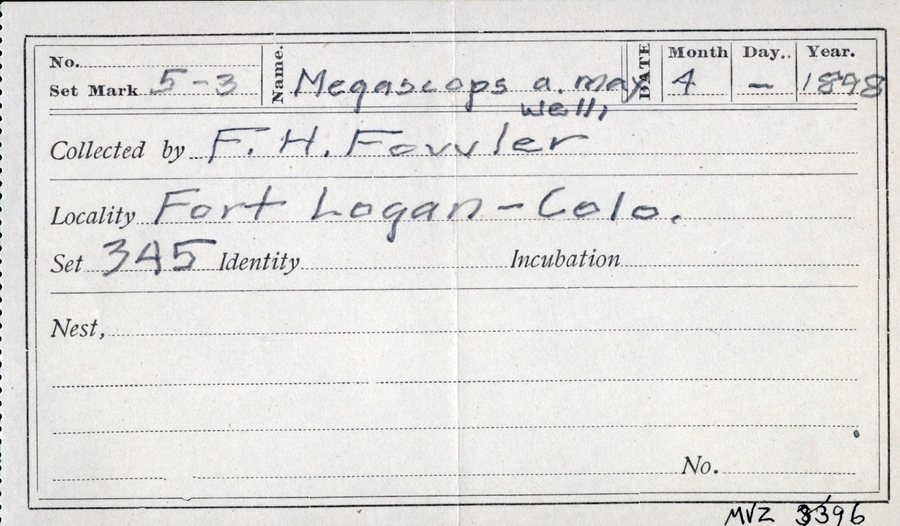 No.
Set Mark 5-3 Name. Megascops a. max DATE Month 4 Day.. – Year. 1898
welli
Collected by F. H. Fowler
Locality Fort Logan - Colo.
Set 345 Identity Incubation
Nest,
No.
MVZ 3396